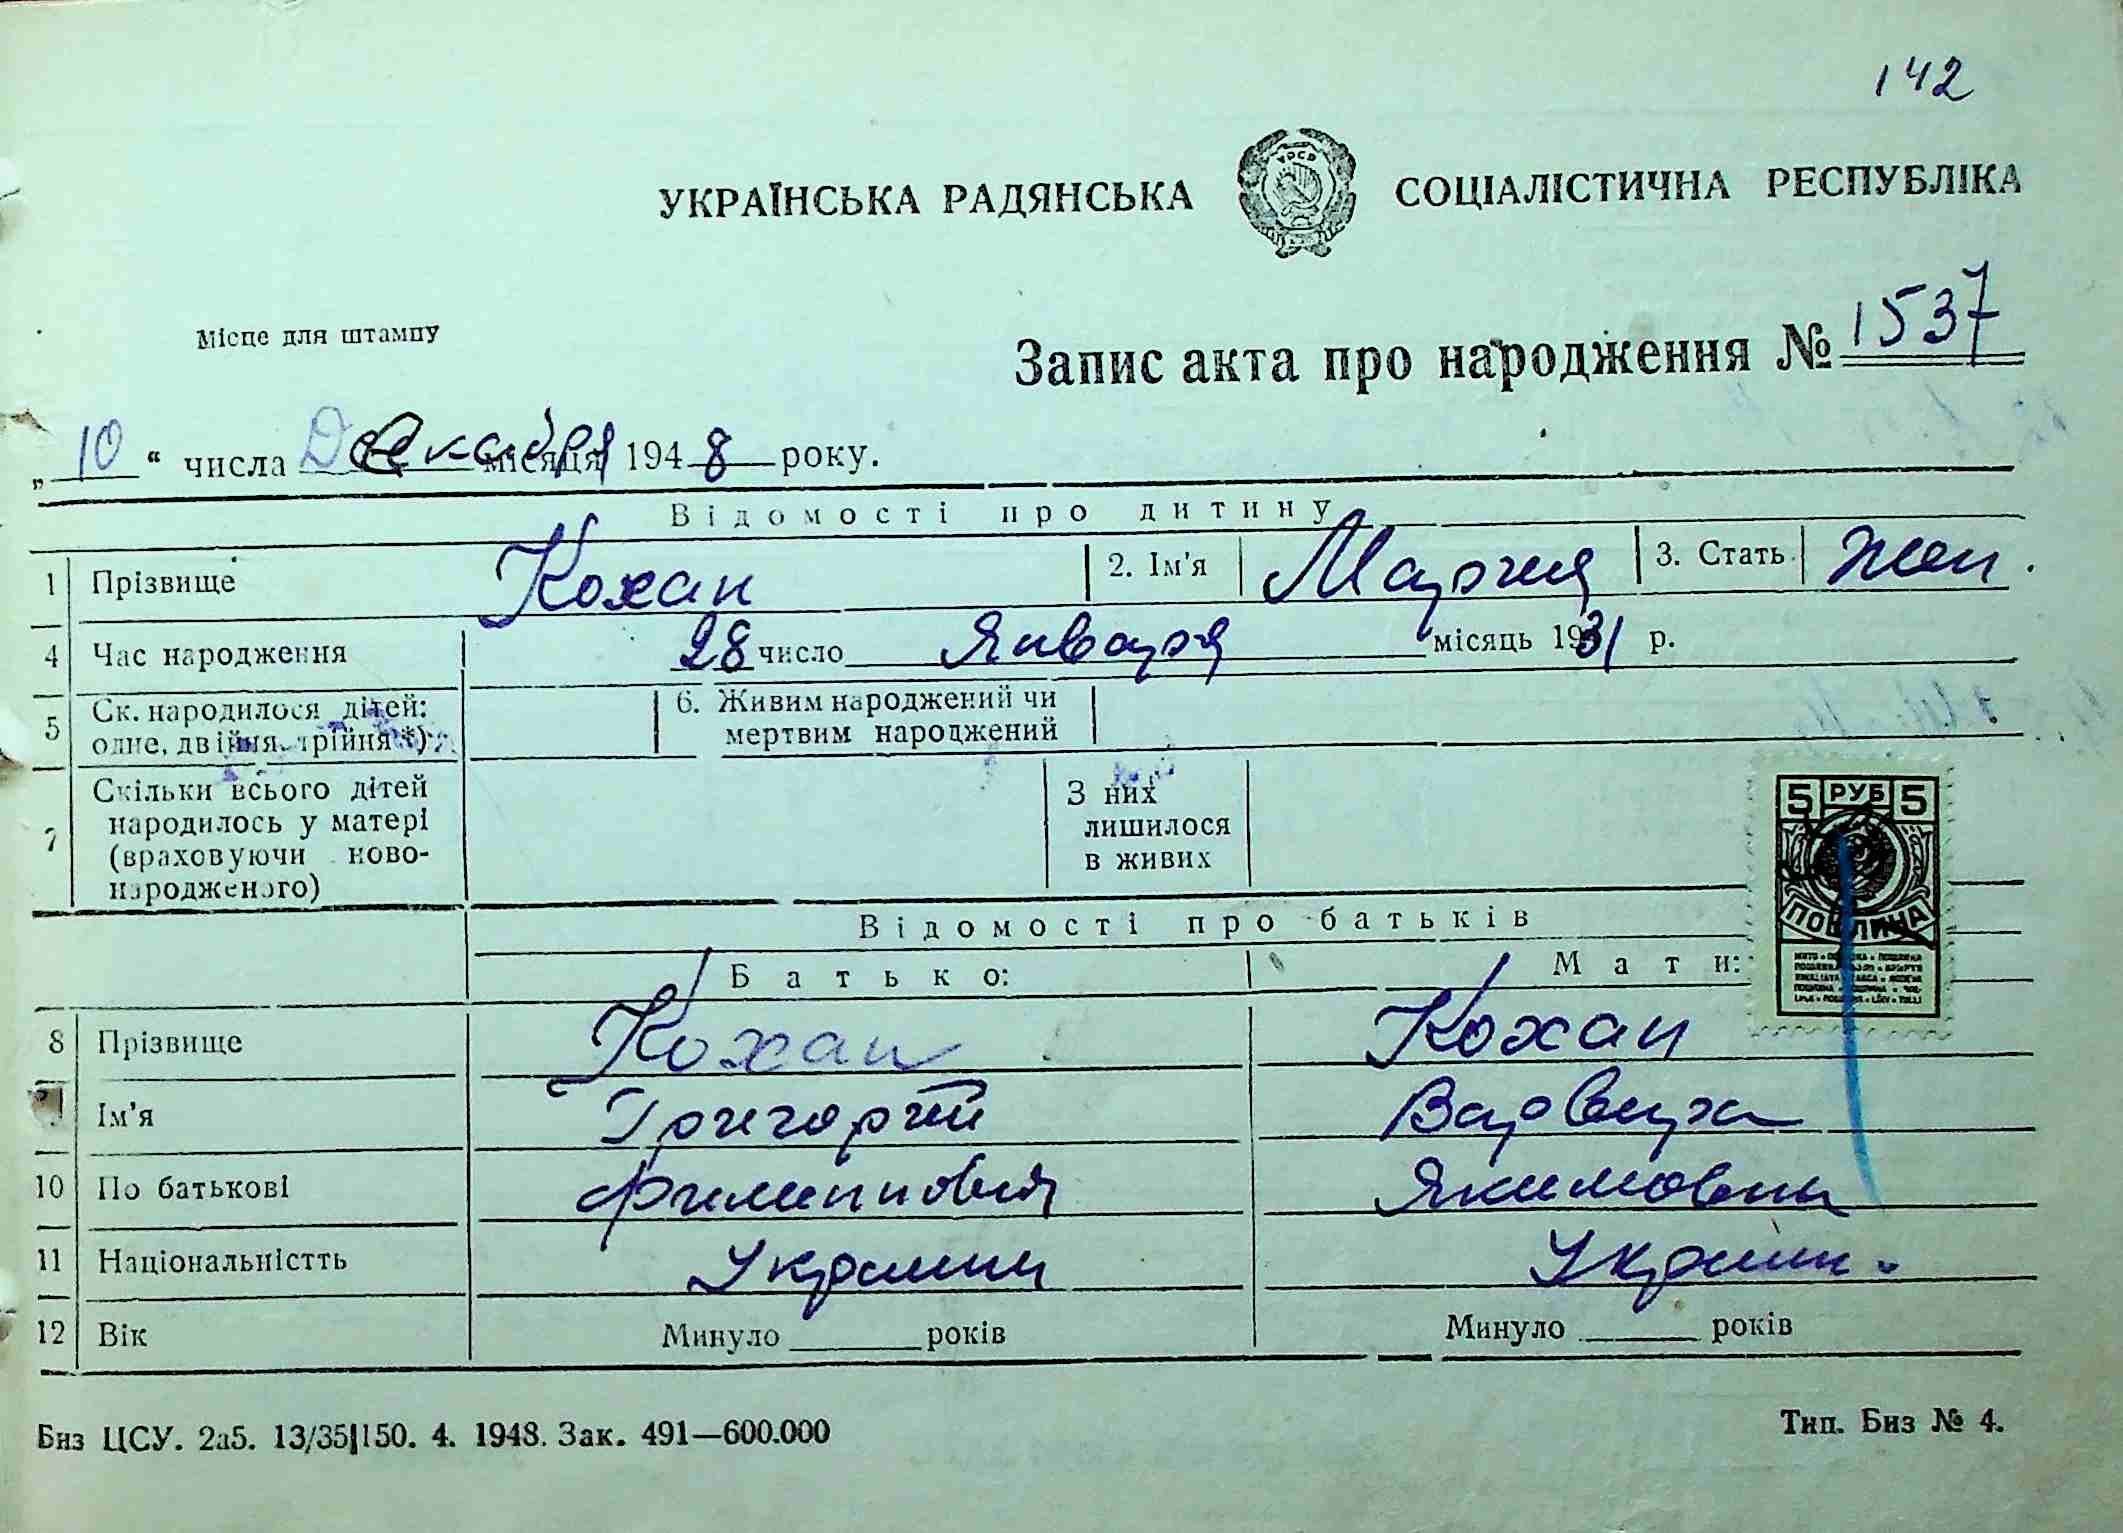 142
УКРАЇНСЬКА РАДЯНСЬКА СОЦІАЛІСТИЧНА РЕСПУБЛІКА
УРСР
Місце для штампу
Запис акта про народження № 1537
„10“ числа Декабря місяця 1948 року.
Відомості про дитину
1 Прізвище Кохан 2. Ім'я Мария 3. Стать жен.
4 Час народження 28 число Января місяць 1931 р.
5 Ск. народилося дітей: 6. Живим народжений чи
одне, двійня, трійня *) мертвим народжений
7 Скільки всього дітей З них
народилось у матері лишилося
(враховуючи ново- в живих
народженого)
5 РУБ 5
ПОШЛИНА
Відомості про батьків
Батько: Мати:
8 Прізвище Кохан Кохан
Ім'я Григорий Варвара
10 По батькові Филиппович Якимовна
11 Національністть Украинец Украин.
12 Вік Минуло року років Минуло років
Биз ЦСУ. 2а5. 13/35|150. 4. 1948. Зак. 491—600.000 Тип. Биз № 4.